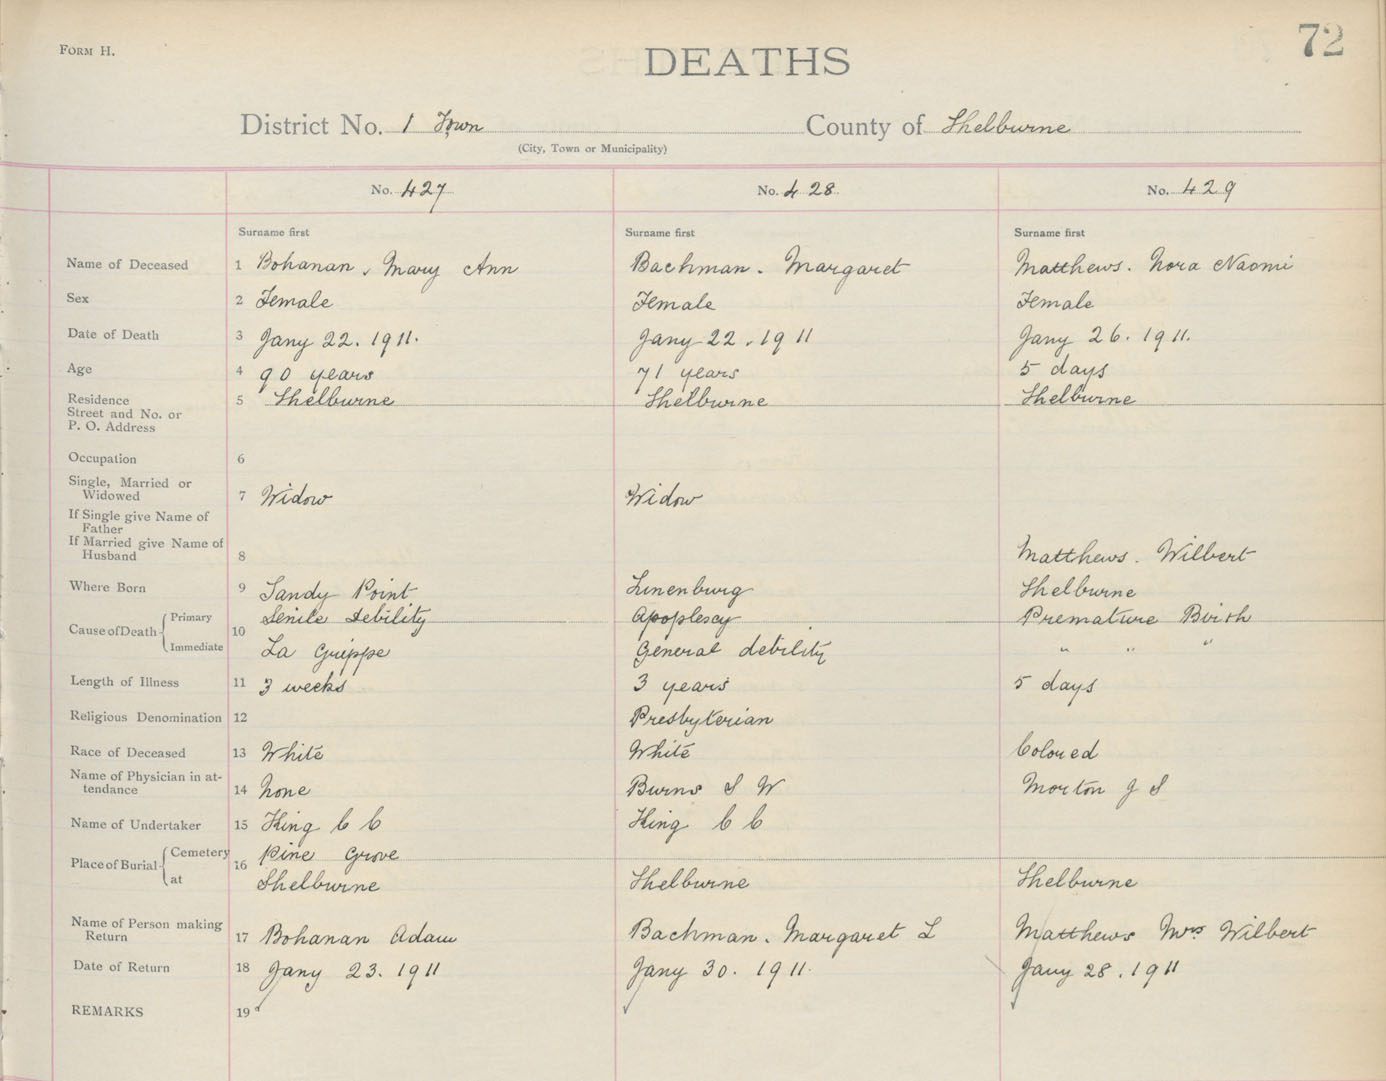 FORM H.
72
DEATHS
District No. 1 Town County of Shelburne
(City, Town or Municipality)
No. 427 No. 428 No. 429
Surname first Surname first Surname first
Name of Deceased 1 Bohanan, Mary Ann Bachman. Margaret Matthews. Nora Naomi
Sex 2 Female Female Female
Date of Death 3 Jany 22. 1911. Jany 22. 1911 Jany 26. 1911.
Age 4 90 years 71 years 5 days
Residence 5 Shelburne Shelburne Shelburne
Street and No. or
P. O. Address
Occupation 6
Single, Married or
Widowed 7 Widow Widow
If Single give Name of
Father
If Married give Name of
Husband 8 Matthews. Wilbert
Where Born 9 Sandy Point Lunenburg Shelburne
Cause of Death 10 Primary Senile Debility Apoplescy Premature Birth
Immediate La Grippe General debility " " "
Length of Illness 11 3 weeks 3 years 5 days
Religious Denomination 12 Presbyterian
Race of Deceased 13 White White Colored
Name of Physician in at-
tendance 14 None Burns S W Morton J S
Name of Undertaker 15 King C C King C C
Place of Burial 16 Cemetery Pine Grove
at Shelburne Shelburne Shelburne
Name of Person making
Return 17 Bohanan Adam Bachman. Margaret L Matthews Mrs Wilbert
Date of Return 18 Jany 23. 1911 Jany 30. 1911. Jany 28. 1911
REMARKS 19